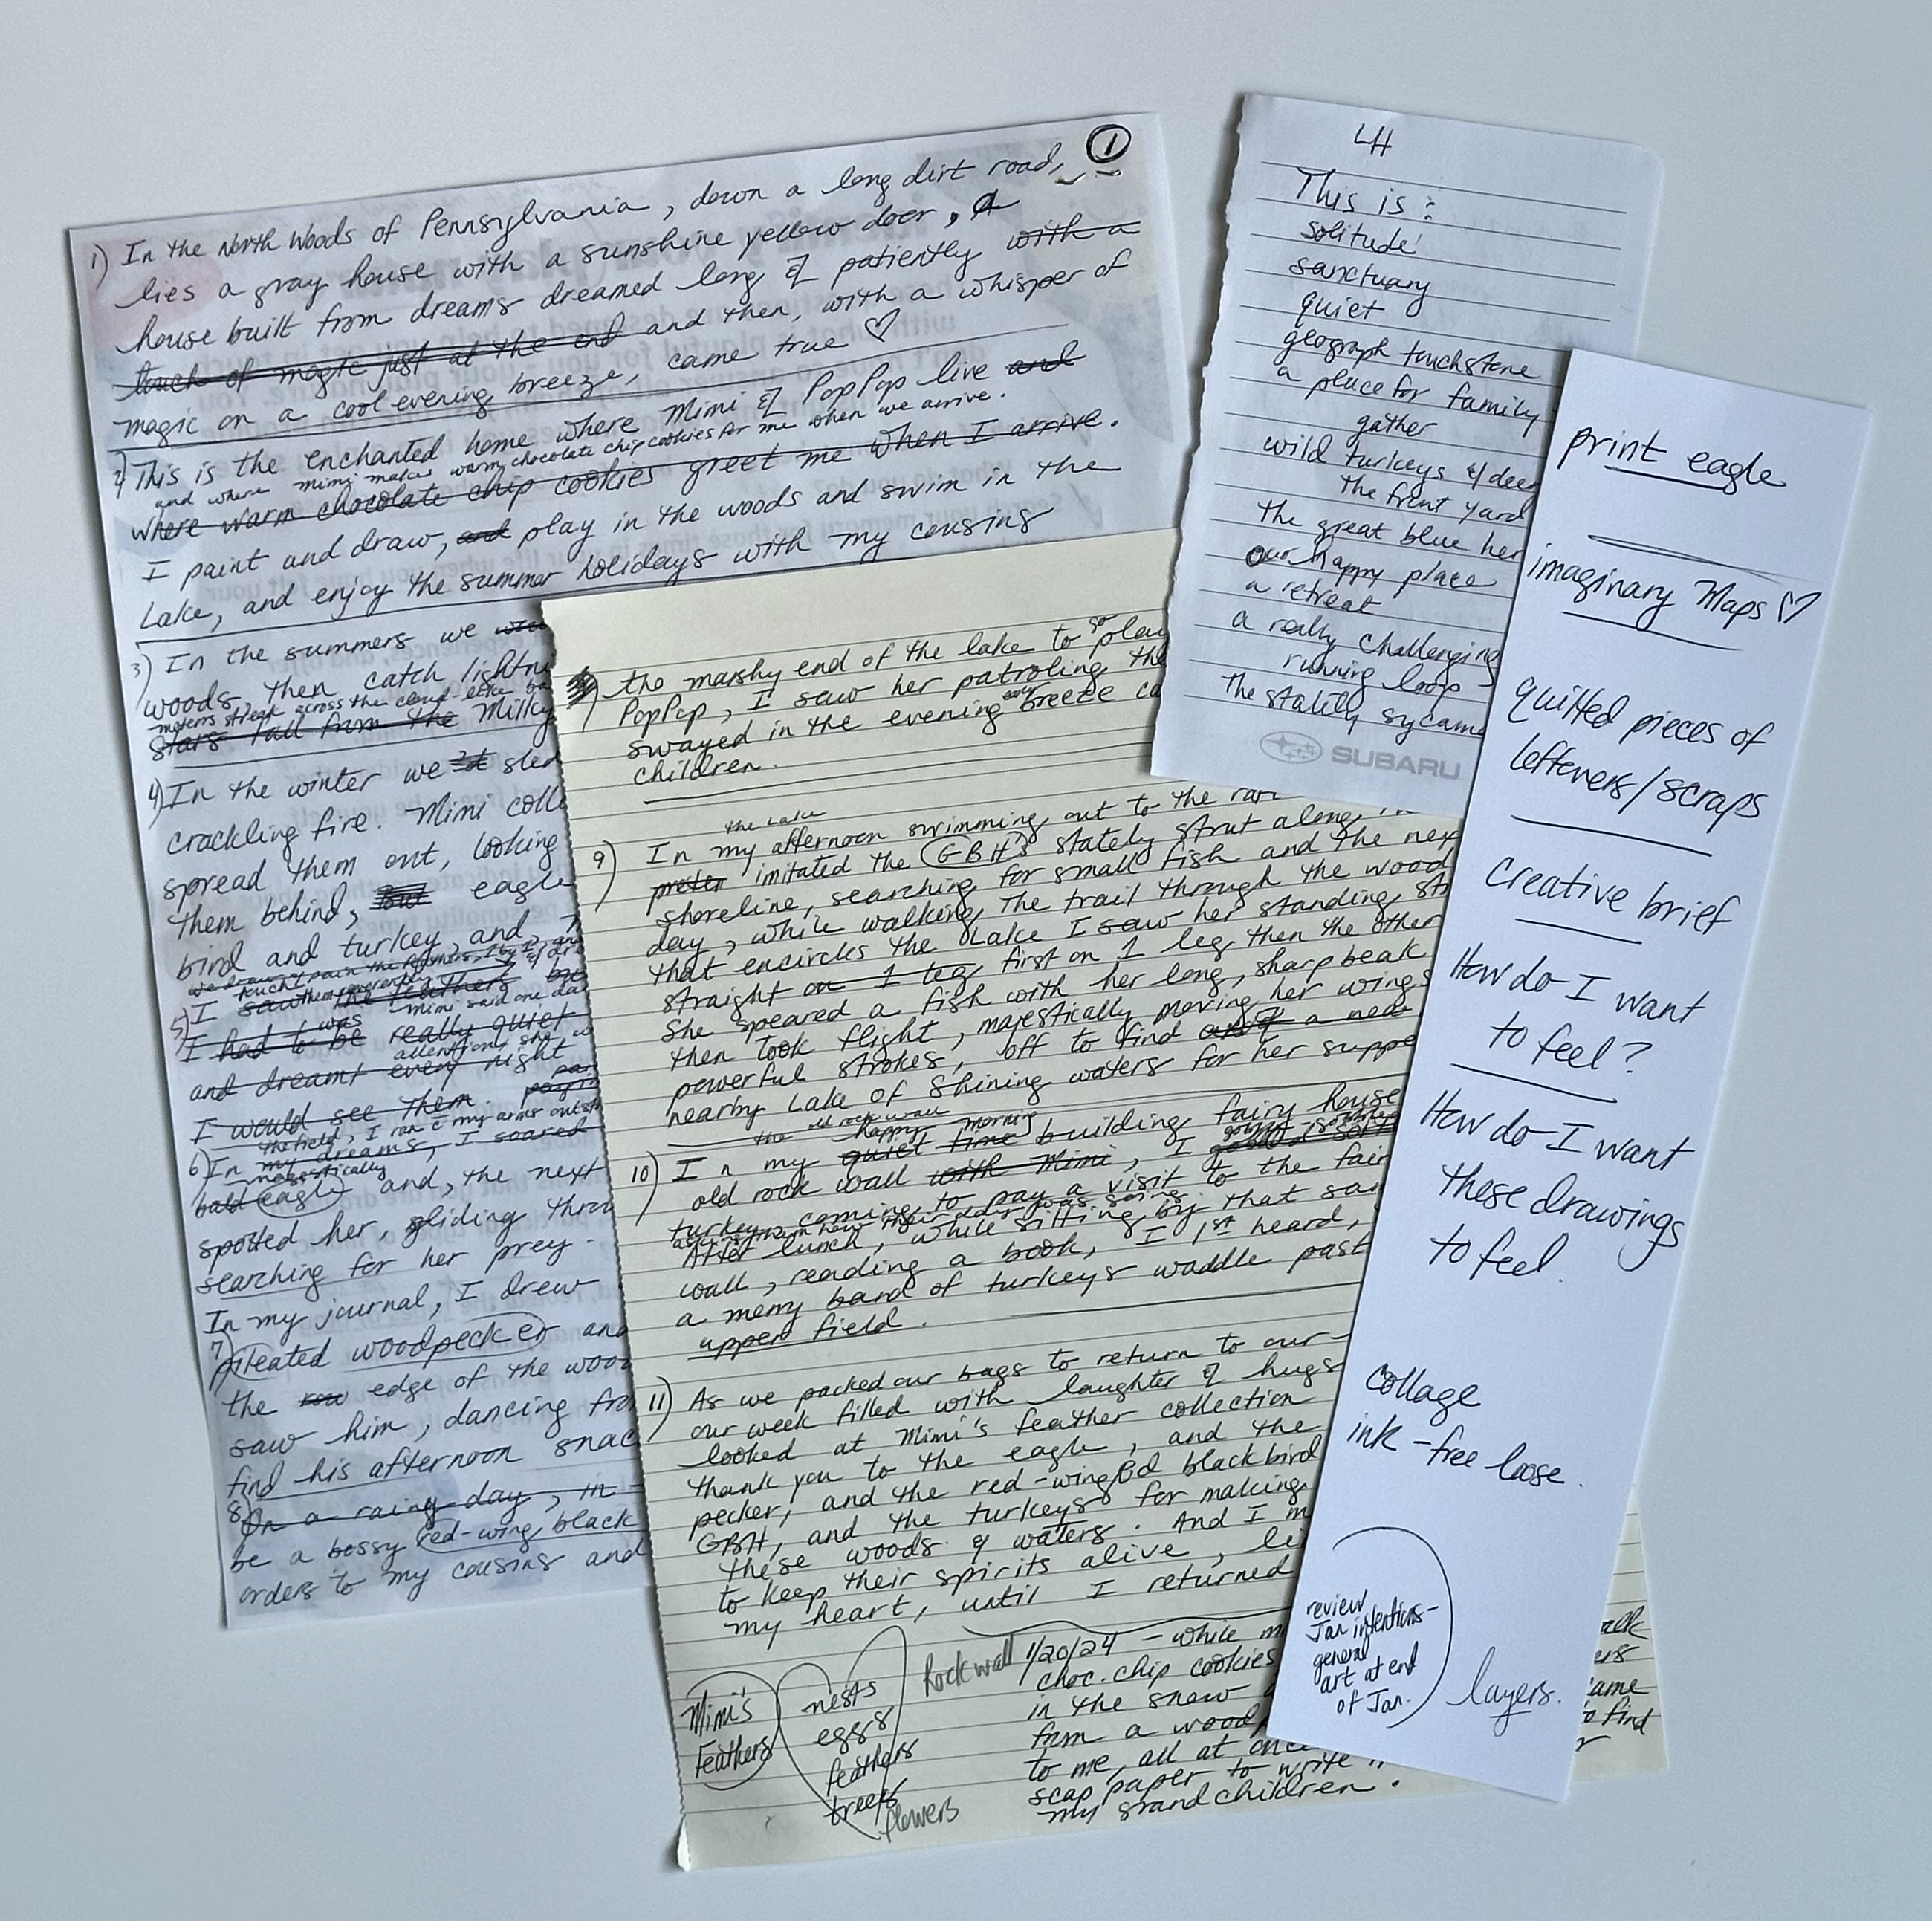 1
1) In the North Woods of Pennsylvania, down a long dirt road,
lies a gray house with a sunshine yellow door, A
house built from dreams dreamed long & patiently with a
touch of magic just at the end and then, with a whisper of
magic on a cool evening breeze, came true ♡
2) This is the enchanted home where Mimi & PopPop live and
and where mimi makes warm chocolate chip cookies for me when we arrive.
where warm chocolate chip cookies greet me when I arrive.
I paint and draw, and play in the woods and swim in the
Lake, and enjoy the summer holidays with my cousins
3) In the summers we
woods, then catch lightni
meteors streak across the cloud-like ba
stars fall from the Milky
4) In the winter we sled
crackling fire. Mimi coll
spread them out, looking
them behind, eagle
bird and turkey, and,
5) I saw the feathers
was mimi said one da
I had to be really quiet
attention, she w
and dreamt every night
I would see them.
the field, I ran my arms outst
6) In my dreams, I soared
majestically
bald eagle and, the next
spotted her, gliding thro
searching for her prey.
In my journal, I drew
7) pileated woodpecker and
the row edge of the woo
saw him, dancing fro
find his afternoon snac
8) On a rainy day, in
be a bossy red-wing black
orders to my cousins and
the marshy end of the lake to go play
PopPop, I saw her patroling the
swayed in the evening breeze ca
children.
the Lake
9) In my afternoon swimming out to the
imitated the GBH's stately strut along
shoreline, searching for small fish and the nex
day, while walking the trail through the wood
that encircles the Lake I saw her standing
straight on 1 leg first on 1 leg then the other
She speared a fish with her long, sharp beak
then took flight, majestically moving her wings
powerful strokes, off to find a new
nearby Lake of Shining waters for her suppe
the old rock wall happy morning
10) In my quiet time building fairy house
old rock wall with Mimi, I
turkey coming to pay a visit to the fair
After lunch, while sitting by that sa
wall, reading a book, I 1st heard,
a merry band of turkeys waddle past
upper field.
11) As we packed our bags to return to our
our week filled with laughter & hugs
looked at Mimi's feather collection
thank you to the eagle, and the
pecker, and the red-winged blackbird
GBH, and the turkeys for making
these woods & waters. And I m
to keep their spirits alive, li
my heart, until I returned
Mimi's
Feathers
nests
eggs
feathers
trees
flowers
Rockwall
1/20/24 - while m
choc. chip cookies
in the snow
from a wood
to me, all at once
scap paper to write
my grandchildren.
alk
ers
ame
to find
LH
This is:
solitude
sanctuary
quiet
geograph touchstone
a place for family
gather
wild turkeys & deer
the front yard
the great blue her
our happy place
a retreat
a really challenging
running loop -
The stately sycam
SUBARU
print eagle
imaginary Maps ♡
quilted pieces of
leftovers/scraps
creative brief
How do I want
to feel?
How do I want
these drawings
to feel.
collage
ink - free loose.
review
Jan intentions-
general
art at end
of Jan.
layers.